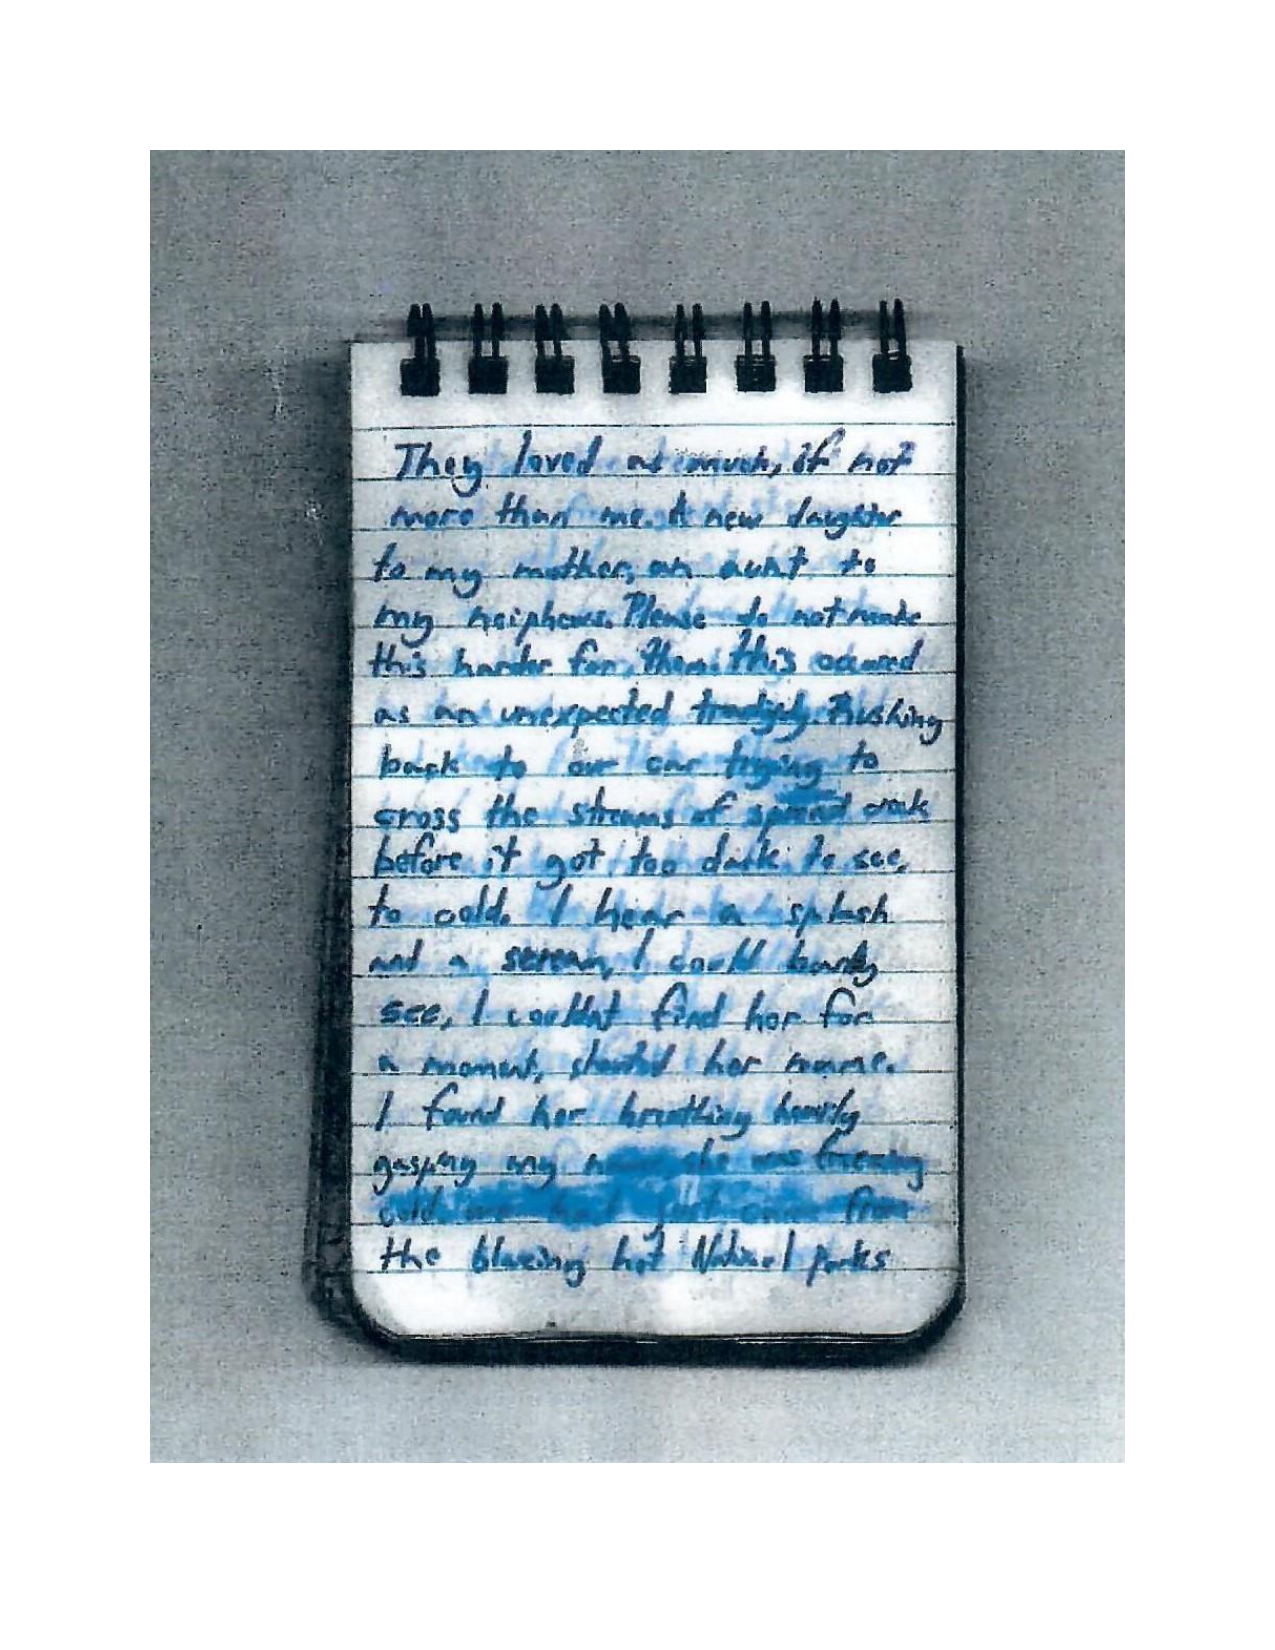 They loved as much, if not
more than me. A new daughter
to my mother, an aunt to
my neiphews. Please do not make
this harder for them. this occured
as an unexpected tradgedy. Rushing
back to our car trying to
cross the streams of spread creek
before it got too dark to see,
to cold. I hear a splash
and a scream, I could barely
see, I couldnt find her for
a moment, shouted her name.
I found her breathing heavily
gasping my name she was freezing
cold we had just came from
the blazing hot National parks